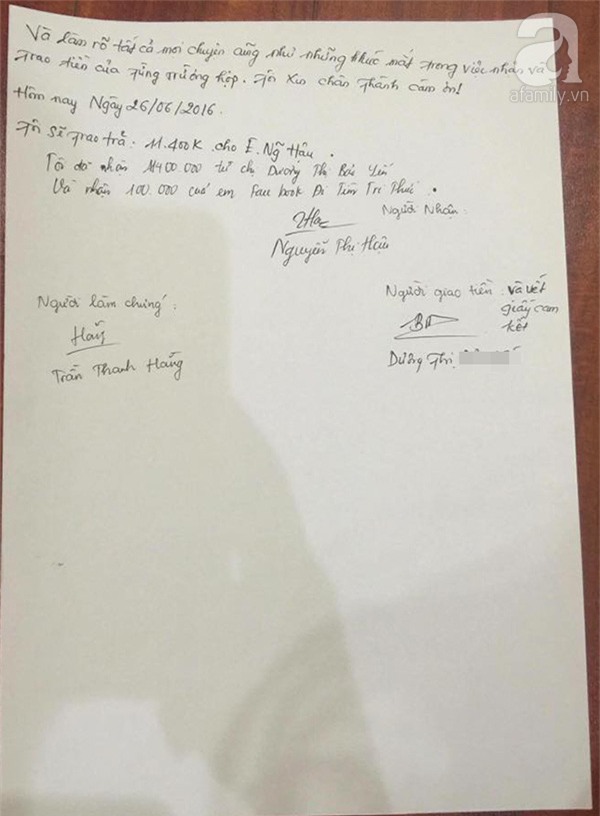 Và làm rõ tất cả mọi chuyện cũng như những khúc mắt trong việc nhận và
trao tiền của từng trường hợp. Tn xin chân thành cám ơn!
Hôm nay Ngày 26/06/2016.
Tn sẽ trao trả: 11.400K cho E. Ng Hậu.
Tôi đã nhận 11400.000 từ chị Dương Thị Bảo Yến
Và nhận 100.000 của em Fau book Đi Tìm Tri Thức.
Người Nhận:
Hậu
Nguyễn Thị Hậu
Người làm chứng:
Người giao tiền và viết
giấy cam
kết
Hằng
Trần Thanh Hằng
Dương Thị
a
afamily.vn